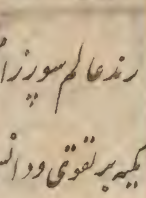 رند عالم سوز را
تکیه بر تقوی و دا